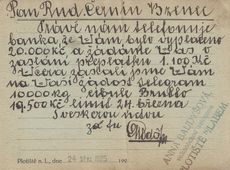 Pan Rud. Černín Březno
Právě nám telefonuje
banka, že Vám bylo vyplaceno
20.000 Kč a žádáme Vás o
zaslání přeplatku 1.100 Kč
Včera zaslali jsme Vám
na Váš žádost telegram
10000 kg Cibule Brutto
19.500 Kč 24. března
S veškerou úctou
Plotiště n. L., dne 24 BŘE 1925 192
PLOTIŠTĚ n. LABEM